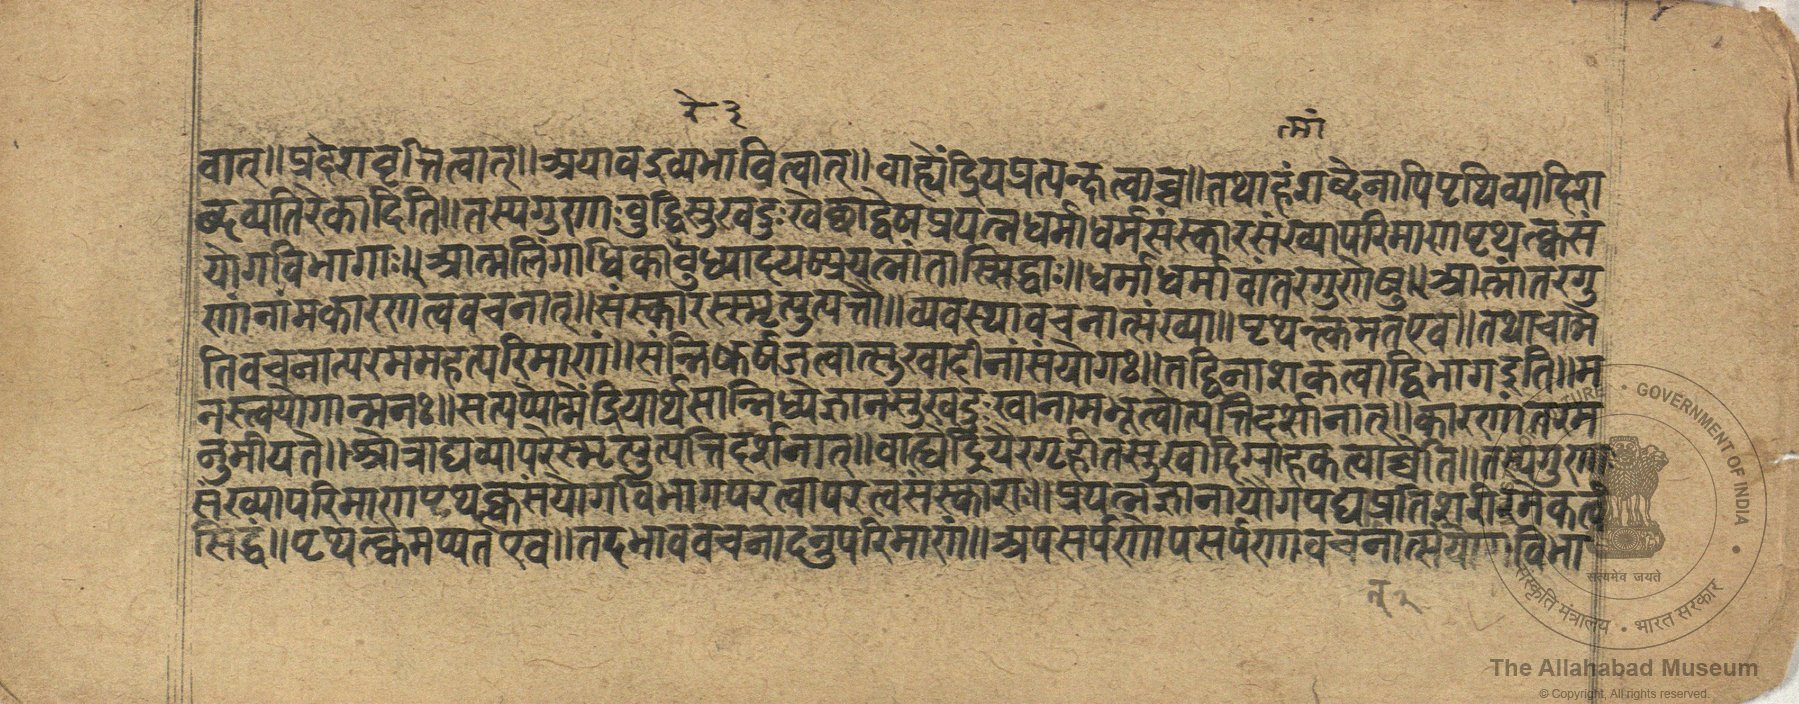 रे ३
त्मां
वात्॥प्रदेशवृत्तित्वात्॥अयावद्द्रव्यभावित्वात्॥वाह्येंद्रियप्रत्यक्षत्वाच्च॥तथाहंशब्देनापिपृथिव्यादिश
ब्दव्यतिरेकादिति॥तस्यगुणाःवुद्धिसुखदुःखेच्छाद्वेषप्रयत्नधर्माधर्मसंस्कारसंख्यापरिमाणपृथक्त्वसं
योगविभागाः॥आत्मलिंगाधिकारेवुध्यादयःप्रयत्नांताःसिद्धाः॥धर्माधर्मावांतरगुणेषु॥आत्मांतरगु
णांनांमकारणत्ववचनात्॥संस्कारस्स्मृत्युत्पत्तौ॥व्यवस्थावचनात्संख्या॥पृथक्त्वमतएव॥तथाचात्मे
तिवचनात्परममहत्परिमाणं॥सन्निकर्षजत्वात्सुखादीनांसंयोगः॥तद्विनाशकत्वाद्विभागइति॥म
नस्त्वयोगान्मनः॥सत्यप्यात्मेंद्रियार्थसान्निध्येज्ञानसुखदुःखानामभूत्वोत्पत्तिदर्शनात्॥कारणांतरम
नुमीयते॥श्रोत्राद्यव्यापरेस्मृत्युत्पत्तिदर्शनात्॥वाह्येंद्रियैरगृहीतसुखादिग्राहकत्वाच्चेति॥तस्यगुणाः
संख्यापरिमाणपृथक्त्वसंयोगविभागपरत्वापरत्वसंस्काराः॥प्रयत्नज्ञानायोगपद्यप्रतिशरीरमेकत्वं
सिद्धं॥पृथक्त्वमप्यतएव॥तदभाववचनादनुपरिमाणं॥अपसर्पणोपसर्पणवचनात्संयोगविभा
GOVERNMENT OF INDIA
सत्यमेव जयते
संस्कृति मंत्रालय • भारत सरकार
The Allahabad Museum
© Copyright, All rights reserved.